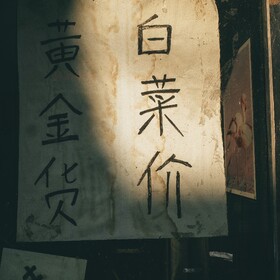 白菜价
黄金货